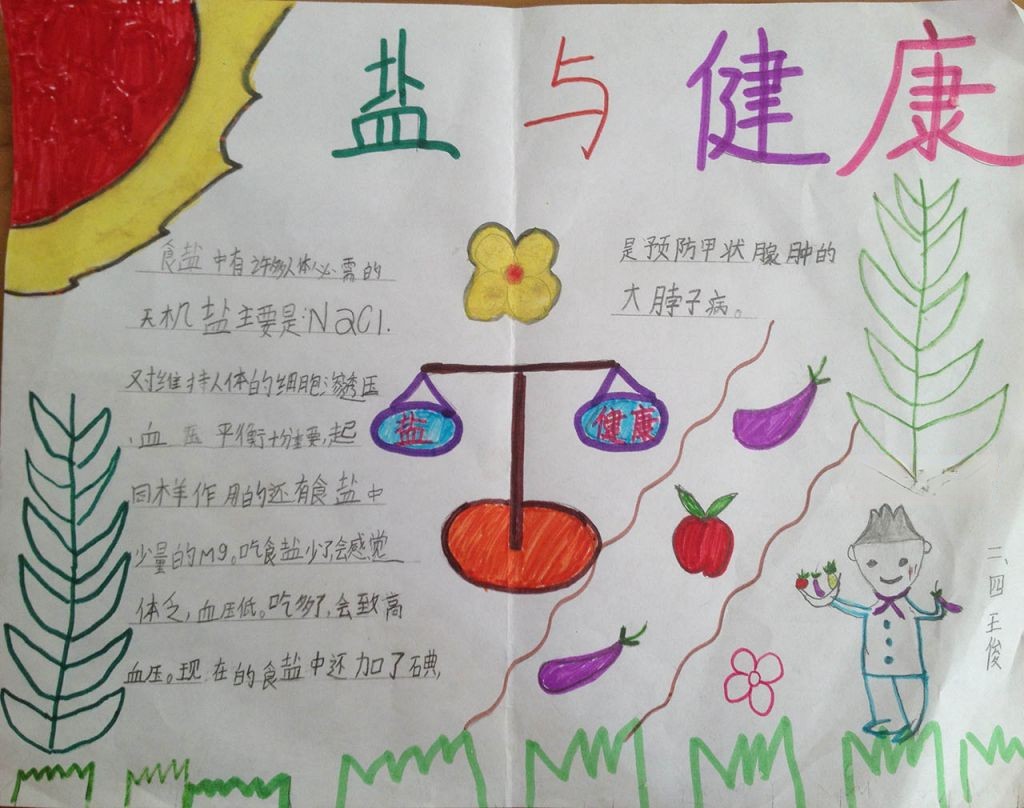 盐与健康
食盐中有许多人体必需的
天机盐主要是:NaCl.
对维持人体的细胞渗透压
、血压平衡十分主要,起
同样作用的还有食盐中
少量的Mg。吃食盐少了会感觉
体乏,血压低。吃多了,会致高
血压。现在的食盐中还加了碘,
是预防甲状腺肿的
大脖子病。
盐
健康
二、四王俊